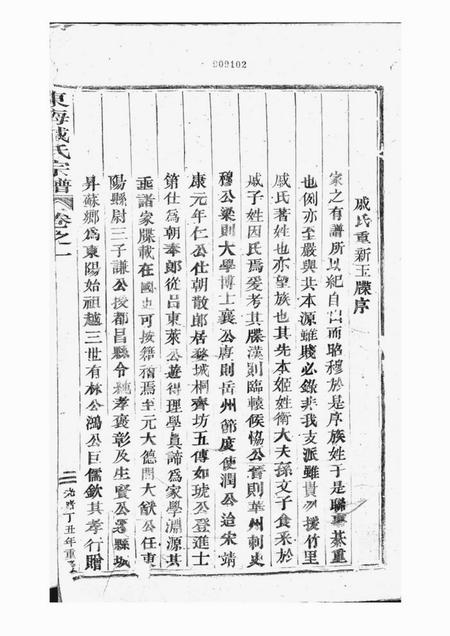 909102
戚氏重新玉牒序
家之有譜所以紀自出而昭穆於是序族姓于是聯事綦重
也例亦至嚴與共本源雖賤必錄非我支派雖貴勿援竹里
戚氏著姓也亦望族也其先本姬姓衛大夫孫文子食采於
戚子姓因氏焉爰考其牒漢則臨轅侯公晉則華州刺史
穆公梁則大學博士襄公唐則岳州節度使潤公迨宋靖
康元年仁公仕朝散郎居婺城桐齊坊五傳如琥公登進士
第仕為朝奉郎從呂東萊公遊得理學眞諦為家學淵源其
諸家牒載在國史可按籍稽焉至元大德間大猷公任東
陽縣尉三子謙公授都昌縣令純孝褒彰及生賢公遷縣城
昇蘇鄉為東陽始祖越三世有林公鴻公巨儒欽其孝行贈
東海戚氏宗譜
卷之一
光緒丁丑年重